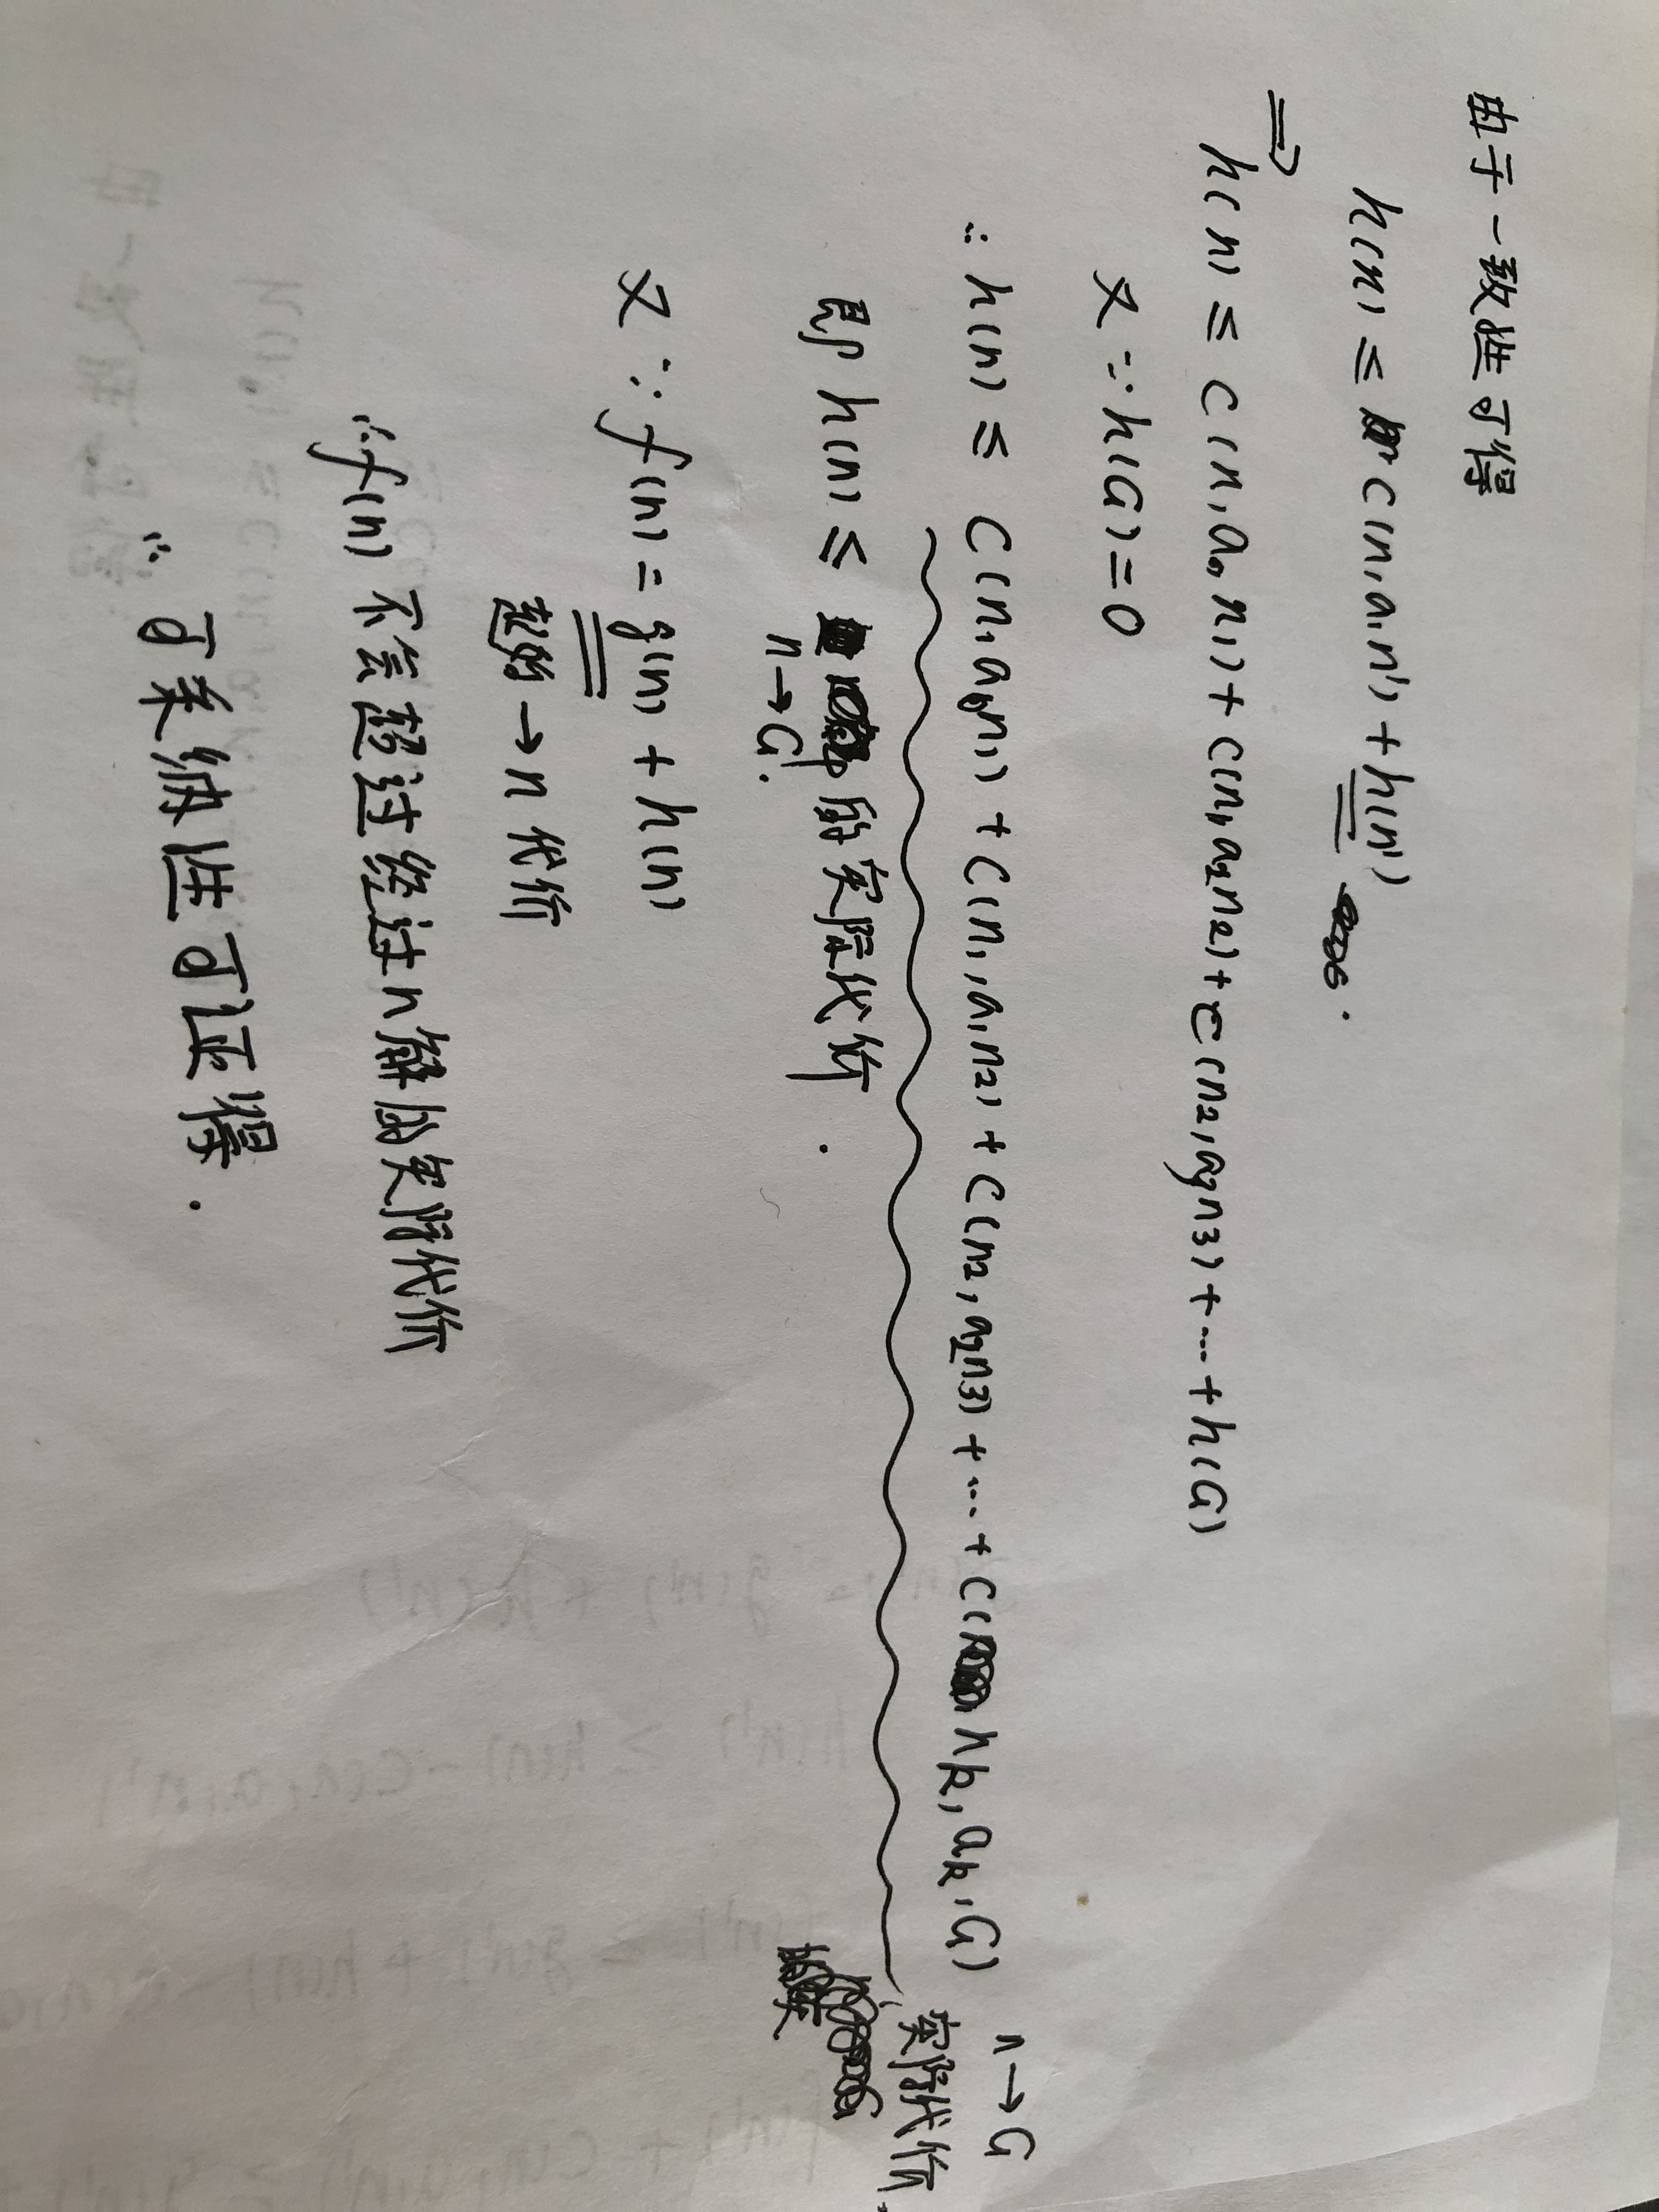 由于一致性可得
h(n) ≤ c(n,a,n') + h(n').
⇒ h(n) ≤ c(n,a₀,n₁) + c(n₁,a₂,n₂) + c(n₂,a₃,n₃) + … + h(G)
又∵h(G)=0
∴ h(n) ≤ c(n,a₀,n₁) + c(n₁,a₁,n₂) + c(n₂,a₂,n₃) + … + c(nk,ak,G)
n→G
实际代价.
即 h(n) ≤ 的实际代价.
n→G.
又∵f(n) = g(n) + h(n)
→n代价
∴f(n)不会超过经过n解的实际代价
∴可采纳性可证得.